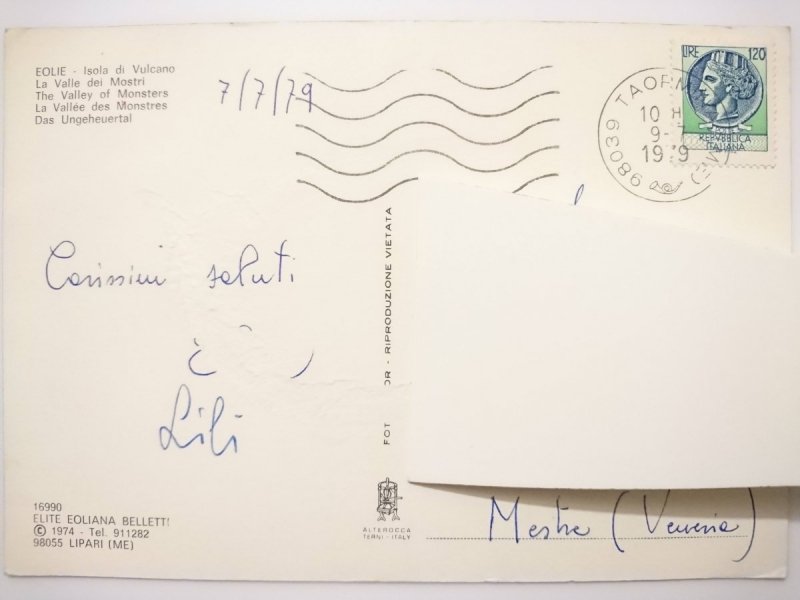 EOLIE - Isola di Vulcano
La Valle dei Mostri
The Valley of Monsters
La Vallée des Monstres
Das Ungeheuertal
7/7/79
LIRE 120
REPVBBLICA
ITALIANA
98039 TAORM
10 H
9-
1979
Carissimi saluti
Lili
FOT OR - RIPRODUZIONE VIETATA
16990
ELITE EOLIANA BELLETTI
© 1974 - Tel. 911282
98055 LIPARI (ME)
ALTEROCCA
TERNI - ITALY
Mestre (Venezia)